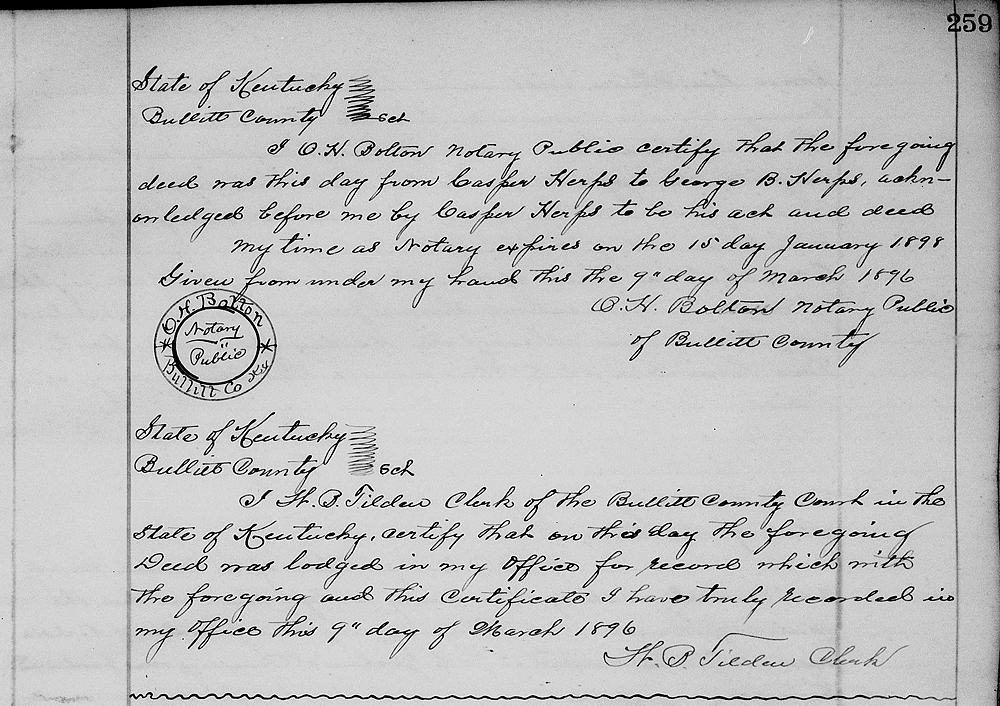 259
State of Kentucky
Bullitt County Sct
I O. H. Bolton Notary Public certify that the foregoing
deed was this day from Casper Herps to George B. Herps, ackn-
onledged before me by Casper Herps to be his act and deed
My time as Notary expires on the 15 day January 1898
Given from under my hand this the 9" day of March 1896
O. H. Bolton Notary Public
of Bullitt County
O. H. Bolton
Notary
Public
Bullitt Co Ky
State of Kentucky
Bullitt County Sct
I H. P. Tilden Clerk of the Bullitt County Court in the
State of Kentucky, certify that on this day the foregoing
Deed was lodged in my Office for record which with
the foregoing and this Certificate I have truly recorded in
my Office this 9" day of March 1896
H. P. Tilden Clerk